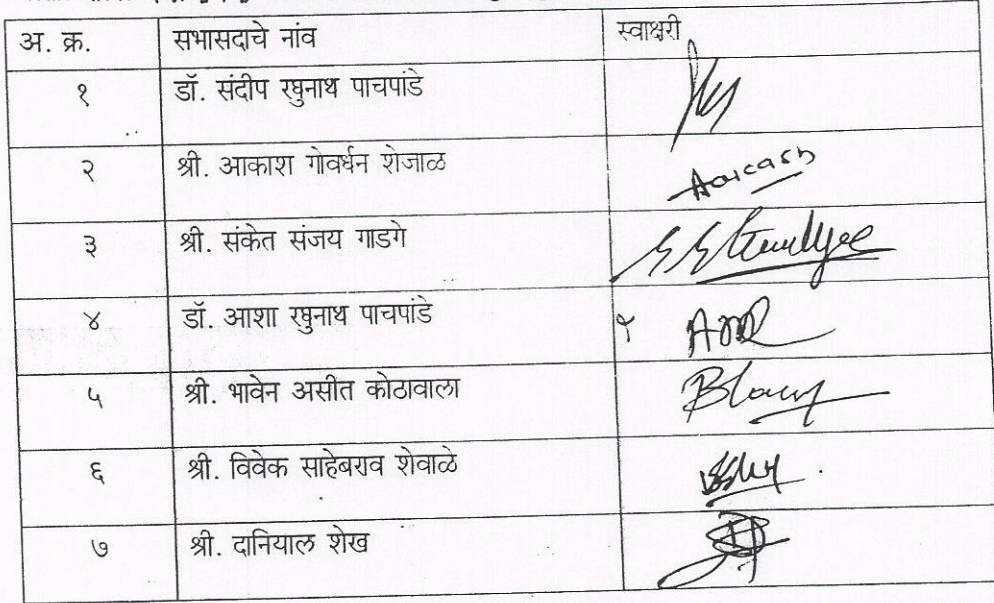 अ. क्र. सभासदाचे नांव स्वाक्षरी
१ डॉ. संदीप रघुनाथ पाचपांडे
२ श्री. आकाश गोवर्धन शेजाळ Aaicash
३ श्री. संकेत संजय गाडगे
४ डॉ. आशा रघुनाथ पाचपांडे
५ श्री. भावेन असीत कोठावाला
६ श्री. विवेक साहेबराव शेवाळे
७ श्री. दानियाल शेख